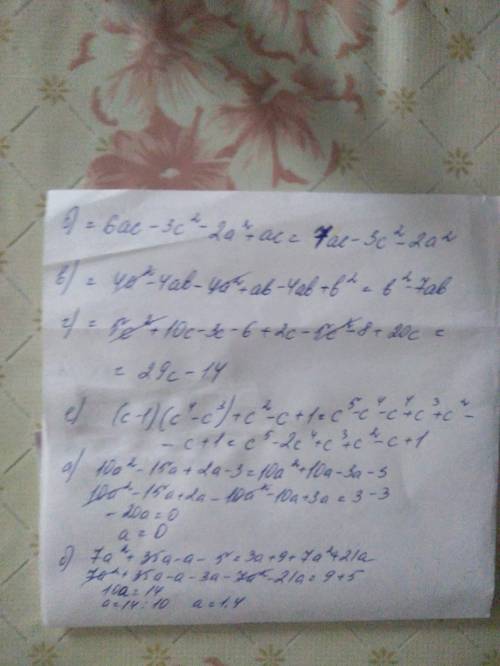 б) = 6ac - 3c² - 2a² + ac = 7ac - 3c² - 2a²
в) = 4a² - 4ab - 4a² + ab - 4ab + b² = b² - 7ab
г) = 5c² + 10c - 3c - 6 + 2c - 5c² - 8 + 20c =
= 29c - 14
е) (c-1)(c⁴-c³)+c²-c+1 = c⁵-c⁴-c⁴+c³+c²-
- c+1 = c⁵-2c⁴+c³+c²-c+1
а) 10a² - 15a + 2a - 3 = 10a² + 10a - 3a - 3
10a² - 15a + 2a - 10a² - 10a + 3a = 3 - 3
- 20a = 0
a = 0
б) 7a² + 35a - a - 5 = 3a + 9 + 7a² + 21a
7a² + 35a - a - 3a - 7a² - 21a = 9 + 5
10a = 14
a = 14 : 10 a = 1,4